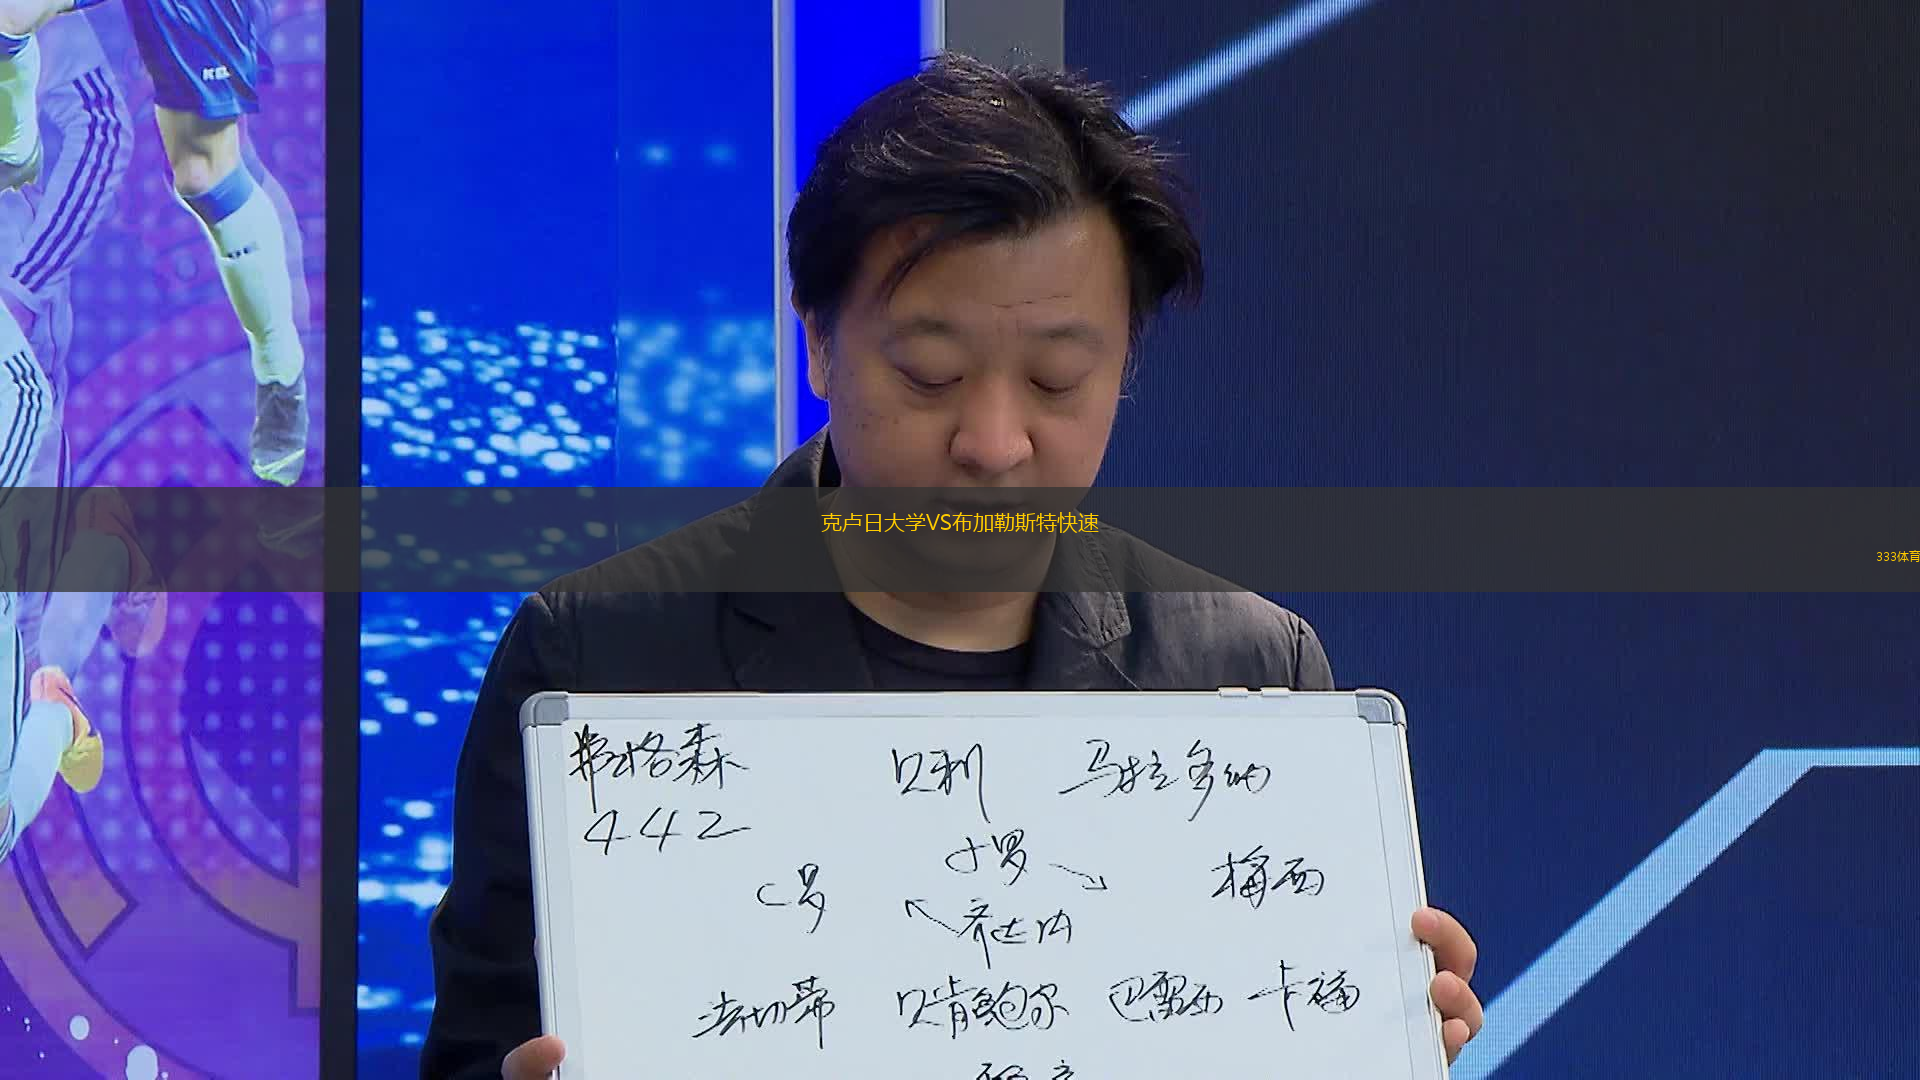 克卢日大学VS布加勒斯特快速
333体育
弗格森 贝利 马拉多纳
442
小罗
C罗 梅西
齐达内
法切蒂 贝肯鲍尔 巴雷西 卡福